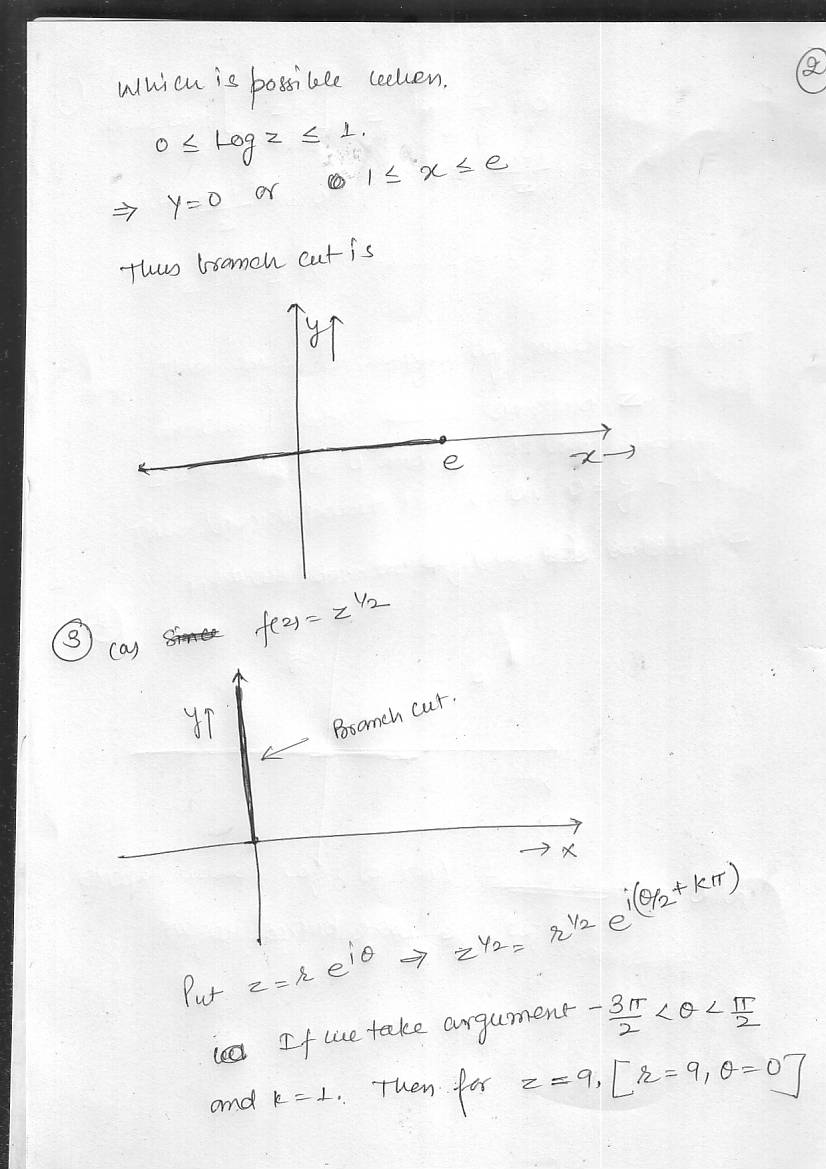 2
which is possible when.
0 ≤ Log z ≤ 1.
⇒ y=0 or 1 ≤ x ≤ e
Thus branch cut is
y↑
e
x→
3 (a) Since f(z) = z^1/2
y↑
Branch cut.
→ x
Put z = r e^iθ ⇒ z^1/2 = r^1/2 e^i(θ/2 + kπ)
If we take argument -3π/2 < θ < π/2
and k=1. Then for z = 9, [r = 9, θ = 0]